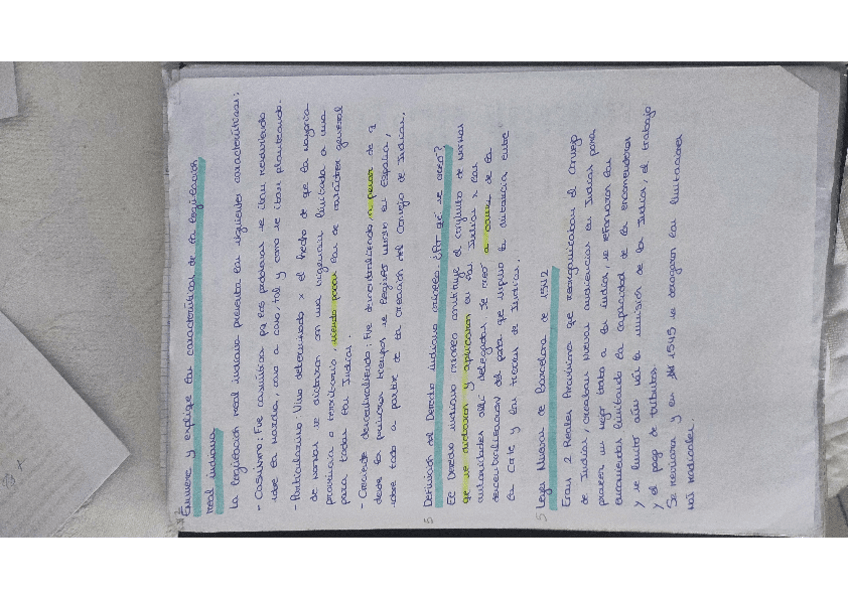 Enumere y explique las características de la legislación
real indiana
La legislación real indiana presenta las siguientes características:
- Casuismo: Fue casuística pq los problemas se iban resolviendo
sobre la marcha, caso a caso, tal y como se iban planteando.
- Particularismo: Vino determinado x el hecho de que la mayoría
de normas se dictaron con una vigencia limitada a una
provincia o territorio, siendo pocas las de carácter general
para todas las Indias.
- Creación descentralizada: Fue descentralizando, a pesar de q
desde los primeros tiempos se
sobre todo a partir de la creación del Consejo de Indias.
5 Definición del Derecho indiano criollo ¿Por qué se creó?
El Derecho indiano criollo constituye el conjunto de normas
que se dictaron y aplicaron en las Indias x las
autoridades allí delegadas. Se creó a causa de la
descentralización del poder que impuso la distancia entre
la Corte y las tierras de Indias.
5 Leyes Nuevas de Barcelona de 1542
Eran 2 Reales Provisiones que reorganizaban el Consejo
de Indias, creaban nuevas audiencias en Indias para
prestar un mejor trato a los indios, se reformaron las
encomiendas limitando la capacidad de los encomenderos
y se limitó aún más la sumisión de los Indios, el trabajo
y el pago de tributos.
Se revisaron y en 1545 se derogaron las limitaciones
más radicales.